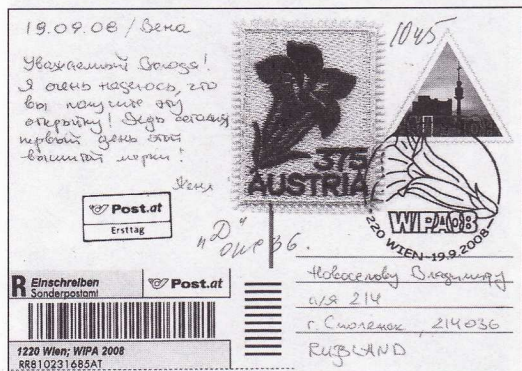 19.09.08 / Вена
Уважаемый Володя!
Я очень надеюсь, что
вы получите эту
открытку! Ведь сегодня
первый день этой
вышитой марки!
Женя
1045
375
AUSTRIA
Post.at
Ersttag
WIPA08
1220 WIEN-19.9.2008
"D"
R Einschreiben
Sonderpostamt
Post.at
1220 Wien; WIPA 2008
RR810231685AT
Новоселову Владимиру
а/я 214
г. Смоленск, 214036
RUßLAND